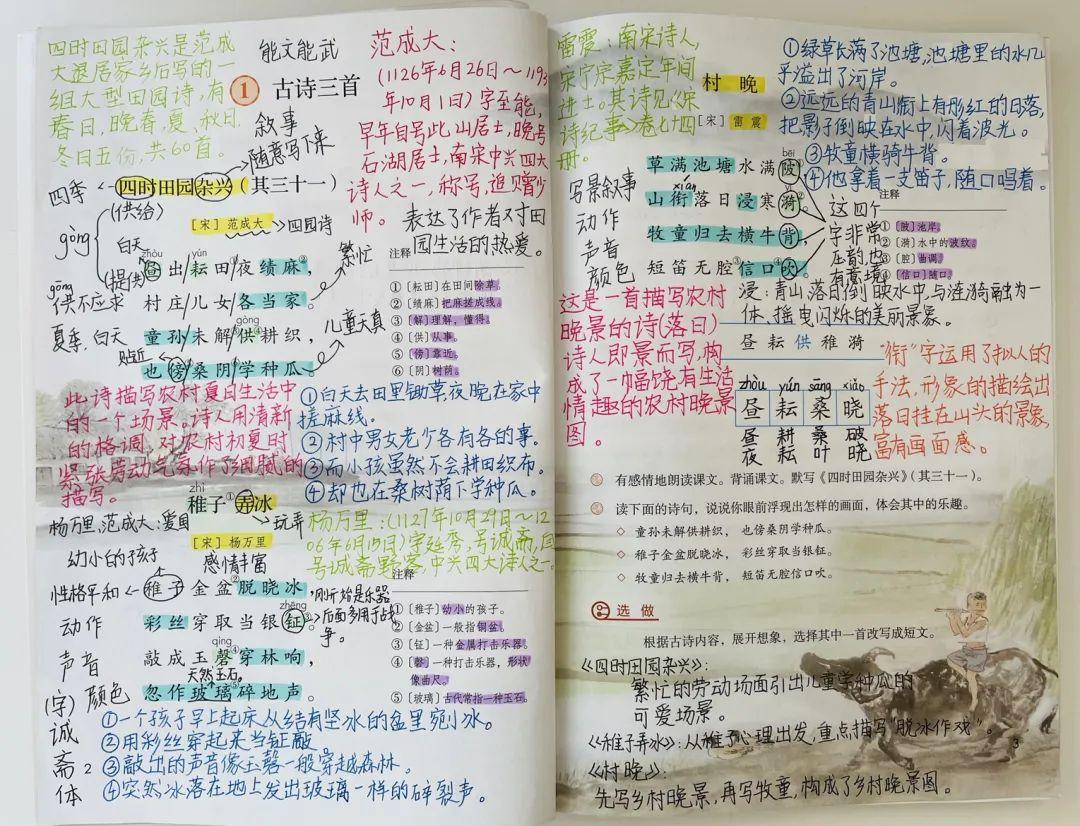 四时田园杂兴是范成
大退居家乡后写的一
组大型田园诗，有
春日，晚春，夏、秋日，
冬日五份，共60首。
能文能武
1 古诗三首
叙事
随意写下来
范成大：
(1126年6月26日～1193
年10月1日)字至能，
早年自号此山居士，晚号
石湖居士，南宋中兴四大
诗人之一，称号，追赠少
师。
四季
四时田园杂兴（其三十一）
[宋] 范成大
四园诗
表达了作者对田
园生活的热爱。
(供给)
gòng
白天
(提供)
繁忙
zhòu yún
昼出/耘田/夜绩麻②，
gōng
供不应求
村庄/儿女/各当家。
夏季，白天
gòng
童孙/未解③/供④耕织，
儿童天真
贴近
也傍⑤桑阴⑥/学种瓜。
注释
① [耘田]在田间除草。
② [绩麻]把麻搓成线。
③ [解]理解，懂得。
④ [供]从事。
⑤ [傍]靠近。
⑥ [阴]树荫。
此诗描写农村夏日生活中
的一个场景。诗人用清新
的格调，对农村初夏时
紧张劳动气氛作了细腻的
描写。
①白天去田里锄草夜晚在家中
搓麻线。
②村中男女老少各有各的事。
③而小孩虽然不会耕田织布。
④却也在桑树荫下学种瓜。
zhì
稚子①弄冰
玩弄
杨万里，范成大：爱国
[宋] 杨万里
杨万里：(1127年10月29日～12
06年6月15日)字廷秀，号诚斋，自
号诚斋野客，中兴四大诗人之一。
幼小的孩子
感情丰富
性格平和
稚子金盆②脱晓冰，
刚开始是乐器
后面多用于战
争。
动作
zhēng
彩丝穿取当银钲③。
声音
qìng
敲成玉磬④穿林响，
天然玉石。
颜色
忽作玻璃⑤碎地声。
(字)
诚
斋
体
注释
① [稚子]幼小的孩子。
② [金盆]一般指铜盆。
③ [钲]一种金属打击乐器。
④ [磬]一种打击乐器，形状
像曲尺。
⑤ [玻璃]古代常指一种玉石。
①一个孩子早上起床从结有坚冰的盆里剜小冰。
②用彩丝穿起来当钲敲
③敲出的声音像玉磬一般穿越森林。
④突然冰落在地上发出玻璃一样的碎裂声。
2
雷震：南宋诗人，
宋宁宗嘉定年间
进士。其诗见《宋
诗纪事》卷七十四
册。
村晚
[宋] 雷震
①绿草长满了池塘，池塘里的水几
乎溢出了河岸。
②远远的青山衔上有彤红的日落，
把影子倒映在水中，闪着波光。
③牧童横骑牛背。
④他拿着一支笛子，随口唱着。
写景叙事
动作
声音
颜色
bēi
草满池塘水满陂①，
xián
山衔落日浸寒漪②。
牧童归去横牛背，
短笛无腔③信口④吹。
这四个
字非常
压韵也
有意境
注释
① [陂]池岸。
② [漪]水中的波纹。
③ [腔]曲调。
④ [信口]随口。
浸：青山，落日倒映水中，与涟漪融为一
体，摇曳闪烁的美丽景象。
这是一首描写农村
晚景的诗(落日)
诗人即景而写，构
成了一幅饶有生活
情趣的农村晚景
图。
昼 耘 供 稚 漪
zhòu yún sāng xiǎo
昼 耘 桑 晓
昼 耕 桑 破
夜 耘 叶 晓
“衔”字运用了拟人的
手法，形象的描绘出
落日挂在山头的景象，
富有画面感。
有感情地朗读课文。背诵课文。默写《四时田园杂兴》（其三十一）。
读下面的诗句，说说你眼前浮现出怎样的画面，体会其中的乐趣。
◇ 童孙未解供耕织，也傍桑阴学种瓜。
◇ 稚子金盆脱晓冰，彩丝穿取当银钲。
◇ 牧童归去横牛背，短笛无腔信口吹。
选做
根据古诗内容，展开想象，选择其中一首改写成短文。
《四时田园杂兴》：
繁忙的劳动场面引出儿童学种瓜的
可爱场景。
《稚子弄冰》：从稚子心理出发，重点描写“脱冰作戏”。
《村晚》：
先写乡村晚景，再写牧童，构成了乡村晚景图。
3